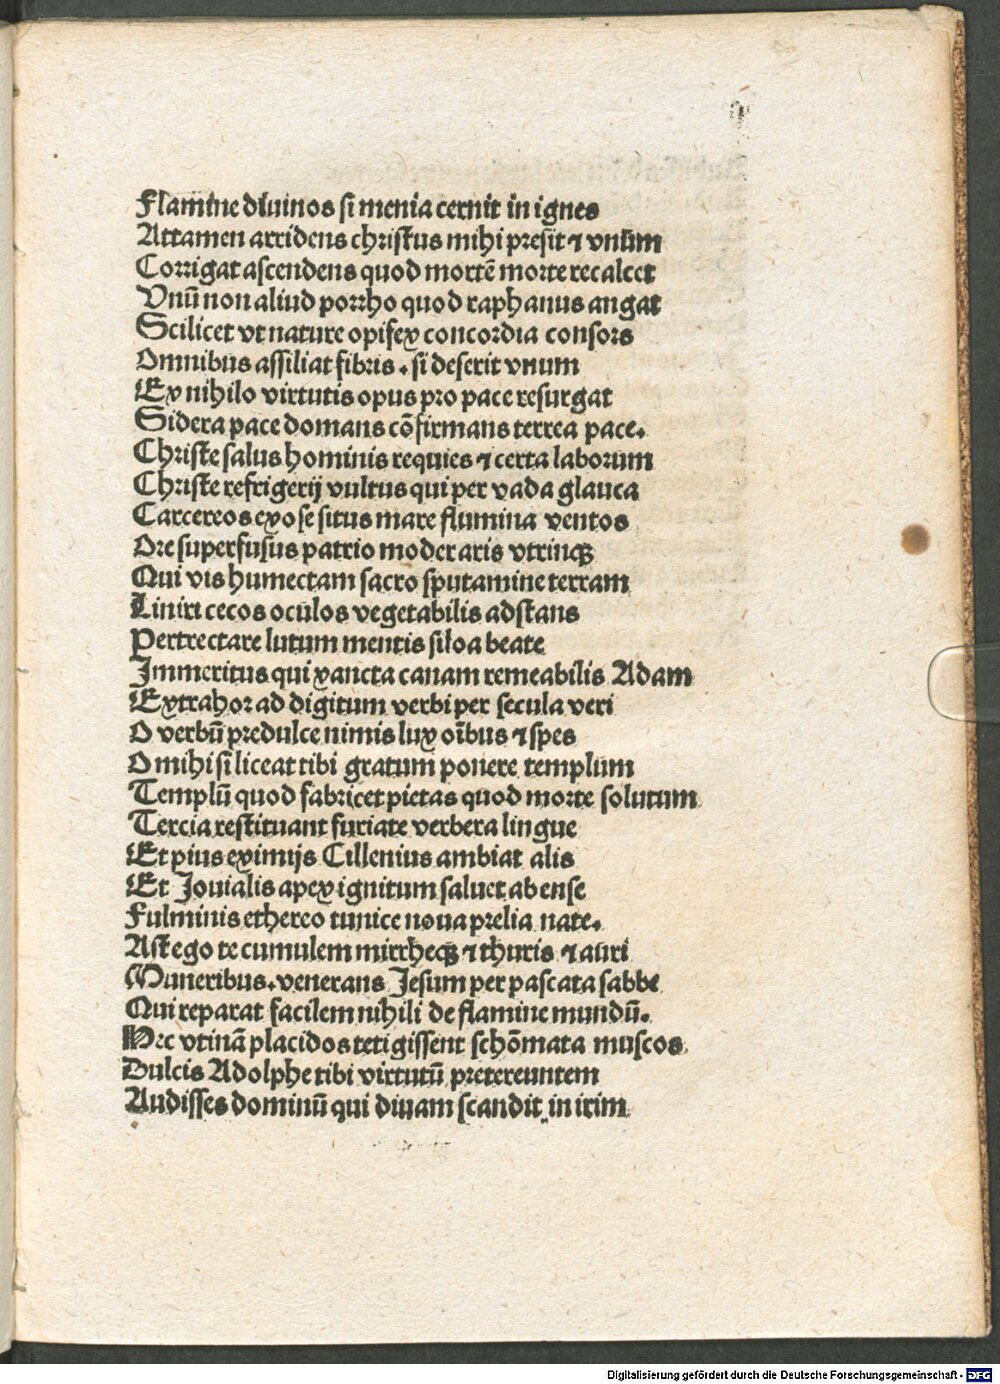 Flamine diuinos si menia cernit in ignes
Attamen arridens christus mihi presit ⁊ vnum
Corrigat ascendens quod mortē morte recalcet
Vnū non aliud porrho quod raphanus angat
Scilicet vt nature opifex concordia consors
Omnibus assiliat fibris . si deserit vnum
Ex nihilo virtutis opus pro pace resurgat
Sidera pace domans cōfirmans terrea pace.
Christe salus hominis requies ⁊ certa laborum
Christe refrigerij vultus qui per vada glauca
Carcereos exose situs mare flumina ventos
Ore superfusus patrio moderaris vtrinqꝫ
Qui vis humectam sacro sputamine terram
Liniri cecos oculos vegetabilis adstans
Pertrectare lutum mentis siloa beate
Immeritus qui xancta canam remeabilis Adam
Extrahor ad digitum verbi per secula veri
O verbū predulce nimis lux oībus ⁊ spes
O mihi si liceat tibi gratum ponere templum
Templū quod fabricet pietas quod morte solutum
Tercia restituant furiate verbera lingue
Et pius eximijs Cillenius ambiat alis
Et Jouialis apex ignitum saluet ab ense
Fulminis ethereo tunice noua prelia nate.
Ast ego te cumulem mirrheqꝫ ⁊ thuris ⁊ auri
Muneribus. venerans Jesum per pascata sabbe
Qui reparat facilem nihili de flamine mundū.
Hec vtinā placidos tetigissent schōmata muscos
Dulcis Adolphe tibi virtutū pretereuntem
Audisses dominū qui diuam scandit in irim
Digitalisierung gefördert durch die Deutsche Forschungsgemeinschaft - DFG